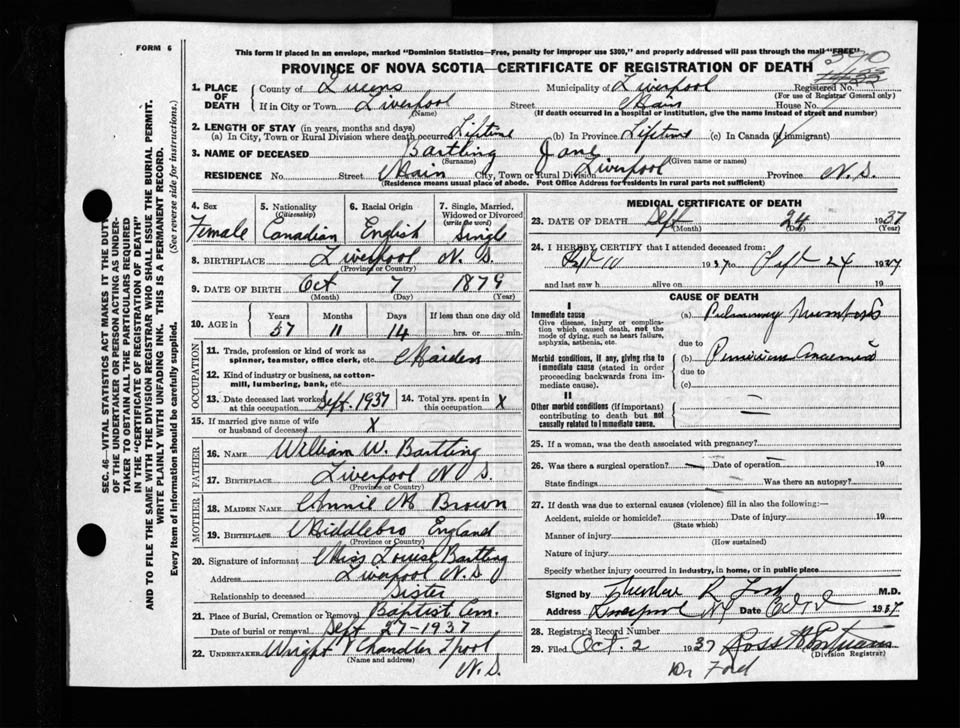 FORM 6
This form if placed in an envelope, marked "Dominion Statistics—Free, penalty for improper use $300," and properly addressed will pass through the mail "FREE"
PROVINCE OF NOVA SCOTIA—CERTIFICATE OF REGISTRATION OF DEATH
1. PLACE OF DEATH
County of Queens Municipality of Liverpool Registered No.
(For use of Registrar General only)
If in City or Town Liverpool Street Main House No.
(Name) (If death occurred in a hospital or institution, give the name instead of street and number)
2. LENGTH OF STAY (in years, months and days)
(a) In City, Town or Rural Division where death occurred Lifetime (b) In Province Lifetime (c) In Canada (if immigrant)
3. NAME OF DECEASED Bartling Jane
(Surname) (Given name or names)
RESIDENCE No. Street Main City, Town or Rural Division Liverpool Province N.S.
(Residence means usual place of abode. Post Office Address for residents in rural parts not sufficient)
4. Sex 5. Nationality (Citizenship) 6. Racial Origin 7. Single, Married, Widowed or Divorced (write the word)
Female Canadian English Single
8. BIRTHPLACE Liverpool N.S.
(Province or Country)
9. DATE OF BIRTH Oct 7 1879
(Month) (Day) (Year)
10. AGE in Years Months Days If less than one day old
57 11 14 hrs. or min.
OCCUPATION
11. Trade, profession or kind of work as spinner, teamster, office clerk, etc. Maiden
12. Kind of industry or business, as cotton-mill, lumbering, bank, etc.
13. Date deceased last worked at this occupation Sept. 1937 14. Total yrs. spent in this occupation X
15. If married give name of wife or husband of deceased X
FATHER
16. NAME William W. Bartling
17. BIRTHPLACE Liverpool N.S.
(Province or Country)
MOTHER
18. MAIDEN NAME Annie M Brown
19. BIRTHPLACE Middlebro England
(Province or Country)
20. Signature of informant Miss Louise Bartling
Address Liverpool N.S.
Relationship to deceased Sister
21. Place of Burial, Cremation or Removal Baptist Cem.
Date of burial or removal Sept 27-1937
22. UNDERTAKER Wright & Chandler Lpool
(Name and address) N.S.
MEDICAL CERTIFICATE OF DEATH
23. DATE OF DEATH Sept 24 1937
(Month) (Day) (Year)
24. I HEREBY CERTIFY that I attended deceased from:
Sept 10 1937 to Sept 24 1937
and last saw h alive on 19
CAUSE OF DEATH
I
Immediate cause (a) Pulmonary
Give disease, injury or complication which caused death, not the mode of dying, such as heart failure, asphyxia, asthenia, etc.
due to
Morbid conditions, if any, giving rise to immediate cause (stated in order proceeding backwards from immediate cause).
(b) Pernicious Anaemia
due to
(c)
II
Other morbid conditions (if important) contributing to death but not causally related to immediate cause.
25. If a woman, was the death associated with pregnancy?
26. Was there a surgical operation? Date of operation 19
State findings Was there an autopsy?
27. If death was due to external causes (violence) fill in also the following:—
Accident, suicide or homicide? Date of injury 19
(State which)
Manner of injury
(How sustained)
Nature of injury
Specify whether injury occurred in industry, in home, or in public place
Signed by Theodore R Ford M.D.
Address Liverpool NS Date Oct 1937
28. Registrar's Record Number
29. Filed Oct. 2 1937 Ross
(Division Registrar)
Dr Ford
SEC. 46—VITAL STATISTICS ACT MAKES IT THE DUTY
OF THE UNDERTAKER OR PERSON ACTING AS UNDER-
TAKER TO OBTAIN ALL THE PARTICULARS REQUIRED
IN THE "CERTIFICATE OF REGISTRATION OF DEATH"
AND TO FILE THE SAME WITH THE DIVISION REGISTRAR WHO SHALL ISSUE THE BURIAL PERMIT.
WRITE PLAINLY WITH UNFADING INK. THIS IS A PERMANENT RECORD.
Every item of information should be carefully supplied. (See reverse side for instructions.)